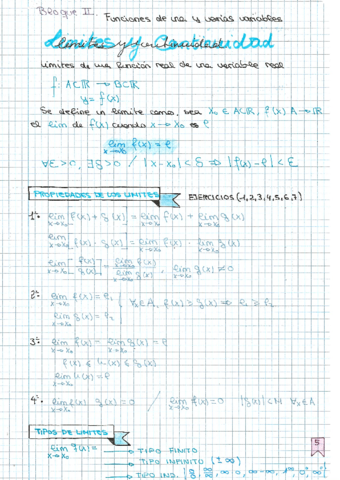 Bloque II. Funciones de una y varias variables
Límites y Continuidad
Límites de una función real de una variable real
f: A⊂ℝ → B⊂ℝ
y = f(x)
Se define un límite como, sea x₀ ∈ A⊂ℝ, f(x) A → ℝ
el lim de f(x) cuando x → x₀ es ℓ
lim x→x₀ f(x) = ℓ
∀ε > 0, ∃δ > 0 / |x - x₀| < δ ⇒ |f(x) - ℓ| < ε
PROPIEDADES DE LOS LÍMITES EJERCICIOS (-1,2,3,4,5,6,7)
1ª: lim x→x₀ f(x) + g(x) = lim x→x₀ f(x) + lim x→x₀ g(x)
lim x→x₀ [f(x) · g(x)] = lim x→x₀ f(x) · lim x→x₀ g(x)
lim x→x₀ [f(x)/g(x)] = lim x→x₀ f(x) / lim x→x₀ g(x), lim x→x₀ g(x) ≠ 0
2ª: lim x→x₀ f(x) = ℓ₁ ∀x∈A, f(x) ≥ g(x) ⇒ ℓ₁ ≥ ℓ₂
lim x→x₀ g(x) = ℓ₂
3ª: lim x→x₀ f(x) = lim x→x₀ g(x) = ℓ
f(x) ≤ h(x) ≤ g(x)
lim x→x₀ h(x) = ℓ
4ª: lim x→x₀ f(x) · g(x) = 0 / lim x→x₀ f(x) = 0 |g(x)| < M ∀x∈A
TIPOS DE LÍMITES
5
lim x→x₀ f(x) = → TIPO FINITO
→ TIPO INFINITO (±∞)
→ TIPO IND. [0/0, ∞/∞, ∞·0, ∞-∞, 1^∞, 0⁰, ∞⁰]